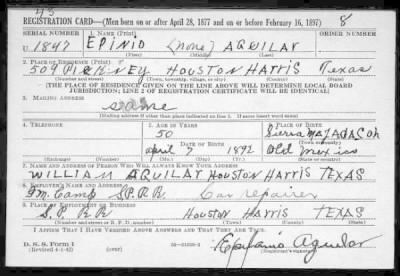 45
REGISTRATION CARD—(Men born on or after April 28, 1877 and on or before February 16, 1897) 8
SERIAL NUMBER 1. NAME (Print) ORDER NUMBER
U 1847 EPINIO (None) AQUILAR
(First) (Middle) (Last)
2. PLACE OF RESIDENCE (Print)
509 HOUSTON HARRIS Texas
(Number and street) (Town, township, village, or city) (County) (State)
[THE PLACE OF RESIDENCE GIVEN ON THE LINE ABOVE WILL DETERMINE LOCAL BOARD
JURISDICTION; LINE 2 OF REGISTRATION CERTIFICATE WILL BE IDENTICAL]
3. MAILING ADDRESS
same
[Mailing address if other than place indicated on line 2. If same insert word same]
4. TELEPHONE 5. AGE IN YEARS 6. PLACE OF BIRTH
50
DATE OF BIRTH (Town or county)
April 7 1892 Old Mexico
(Exchange) (Number) (Mo.) (Day) (Yr.) (State or country)
7. NAME AND ADDRESS OF PERSON WHO WILL ALWAYS KNOW YOUR ADDRESS
WILLIAM AQUILAR HOUSTON HARRIS TEXAS
8. EMPLOYER'S NAME AND ADDRESS
Camp S.P.R.R. Car repairer
9. PLACE OF EMPLOYMENT OR BUSINESS
S.P. RR HOUSTON HARRIS TEXAS
(Number and street or R. F. D. number) (Town) (County) (State)
I AFFIRM THAT I HAVE VERIFIED ABOVE ANSWERS AND THAT THEY ARE TRUE.
D. S. S. Form 1
(Revised 4-1-42) Epifanio Aguilar
(Registrant's signature)